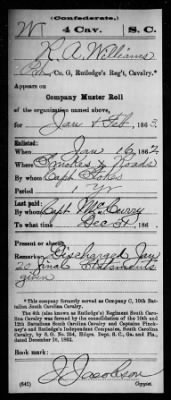 (Confederate.)
W 4 Cav. S. C.
R. A. Williams
Pvt, Co. G, Rutledge's Reg't, Cavalry.*
Appears on
Company Muster Roll
of the organization named above,
for Jan & Feb, 1863.
Enlisted:
When Jan 16, 1862
Where Smokes X Roads
By whom Capt Stokes
Period 1 Yr
Last paid:
By whom Capt McCurry
To what time Dec 31, 186
Present or absent
Remarks: Discharged Jany
20 final Statements
given
*This company formerly served as Company C, 10th Battalion South Carolina Cavalry.
The 4th (also known as Rutledge's) Regiment South Carolina Cavalry was formed by the consolidation of the 10th and
12th Battalions South Carolina Cavalry and Captains Pinckney's and Rutledge's Independent Companies South Carolina
Cavalry, by S. O. No. 254, Hdqrs. Dept. S. C., Ga. and Fla.,
dated December 16, 1862.
Book mark:
J. Jacobson
(642) Copyist.